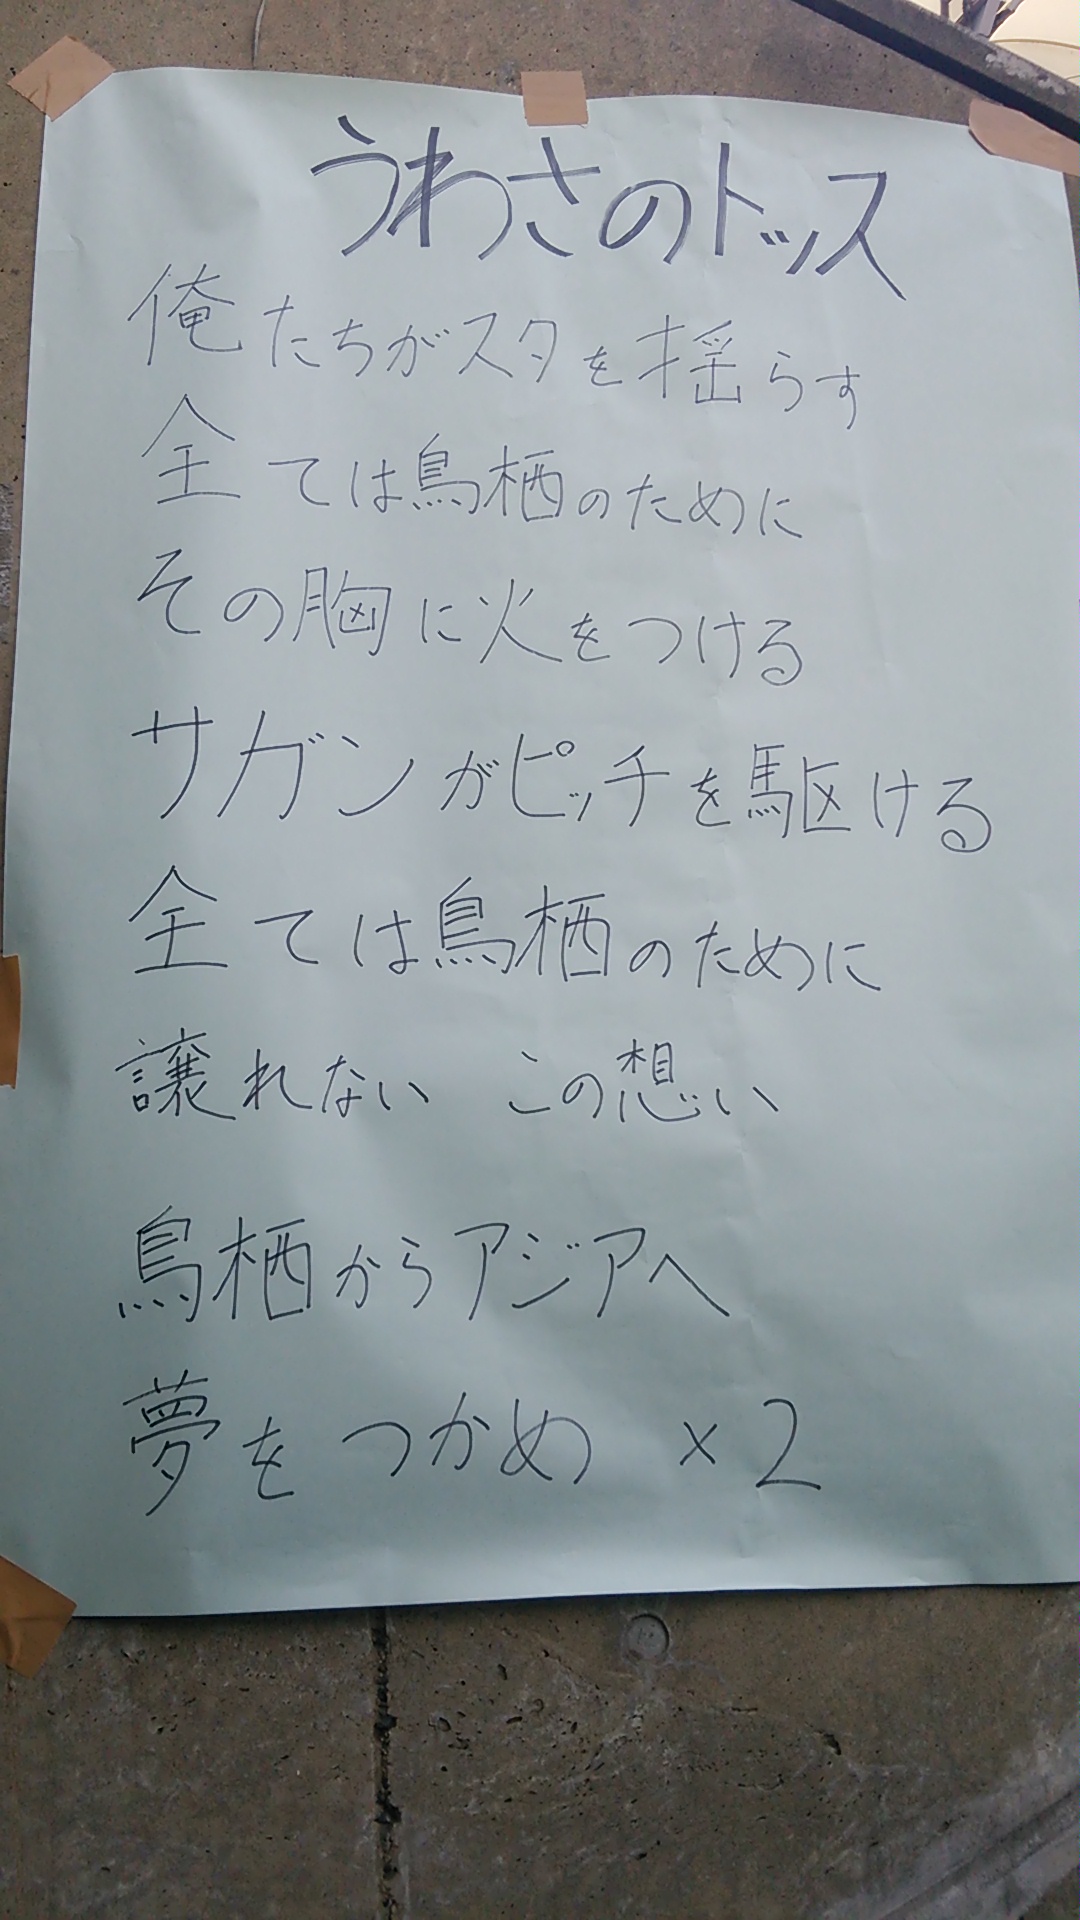 うわさのトッス
俺たちがスタを揺らす
全ては鳥栖のために
その胸に火をつける
サガンがピッチを駆ける
全ては鳥栖のために
譲れない この想い
鳥栖からアジアへ
夢をつかめ ×2